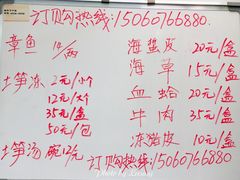 订购热线:15060766880
章鱼 10/两
土笋冻 2元/小个
12元/大个
35元/盒
50元/包
土笋汤 碗12元
海蜇皮 20元/盒
海草 15元/盒
血蛤 20元/盒
牛肉 35元/盒
冻猪皮 10元/盒
订购热线:15060766880